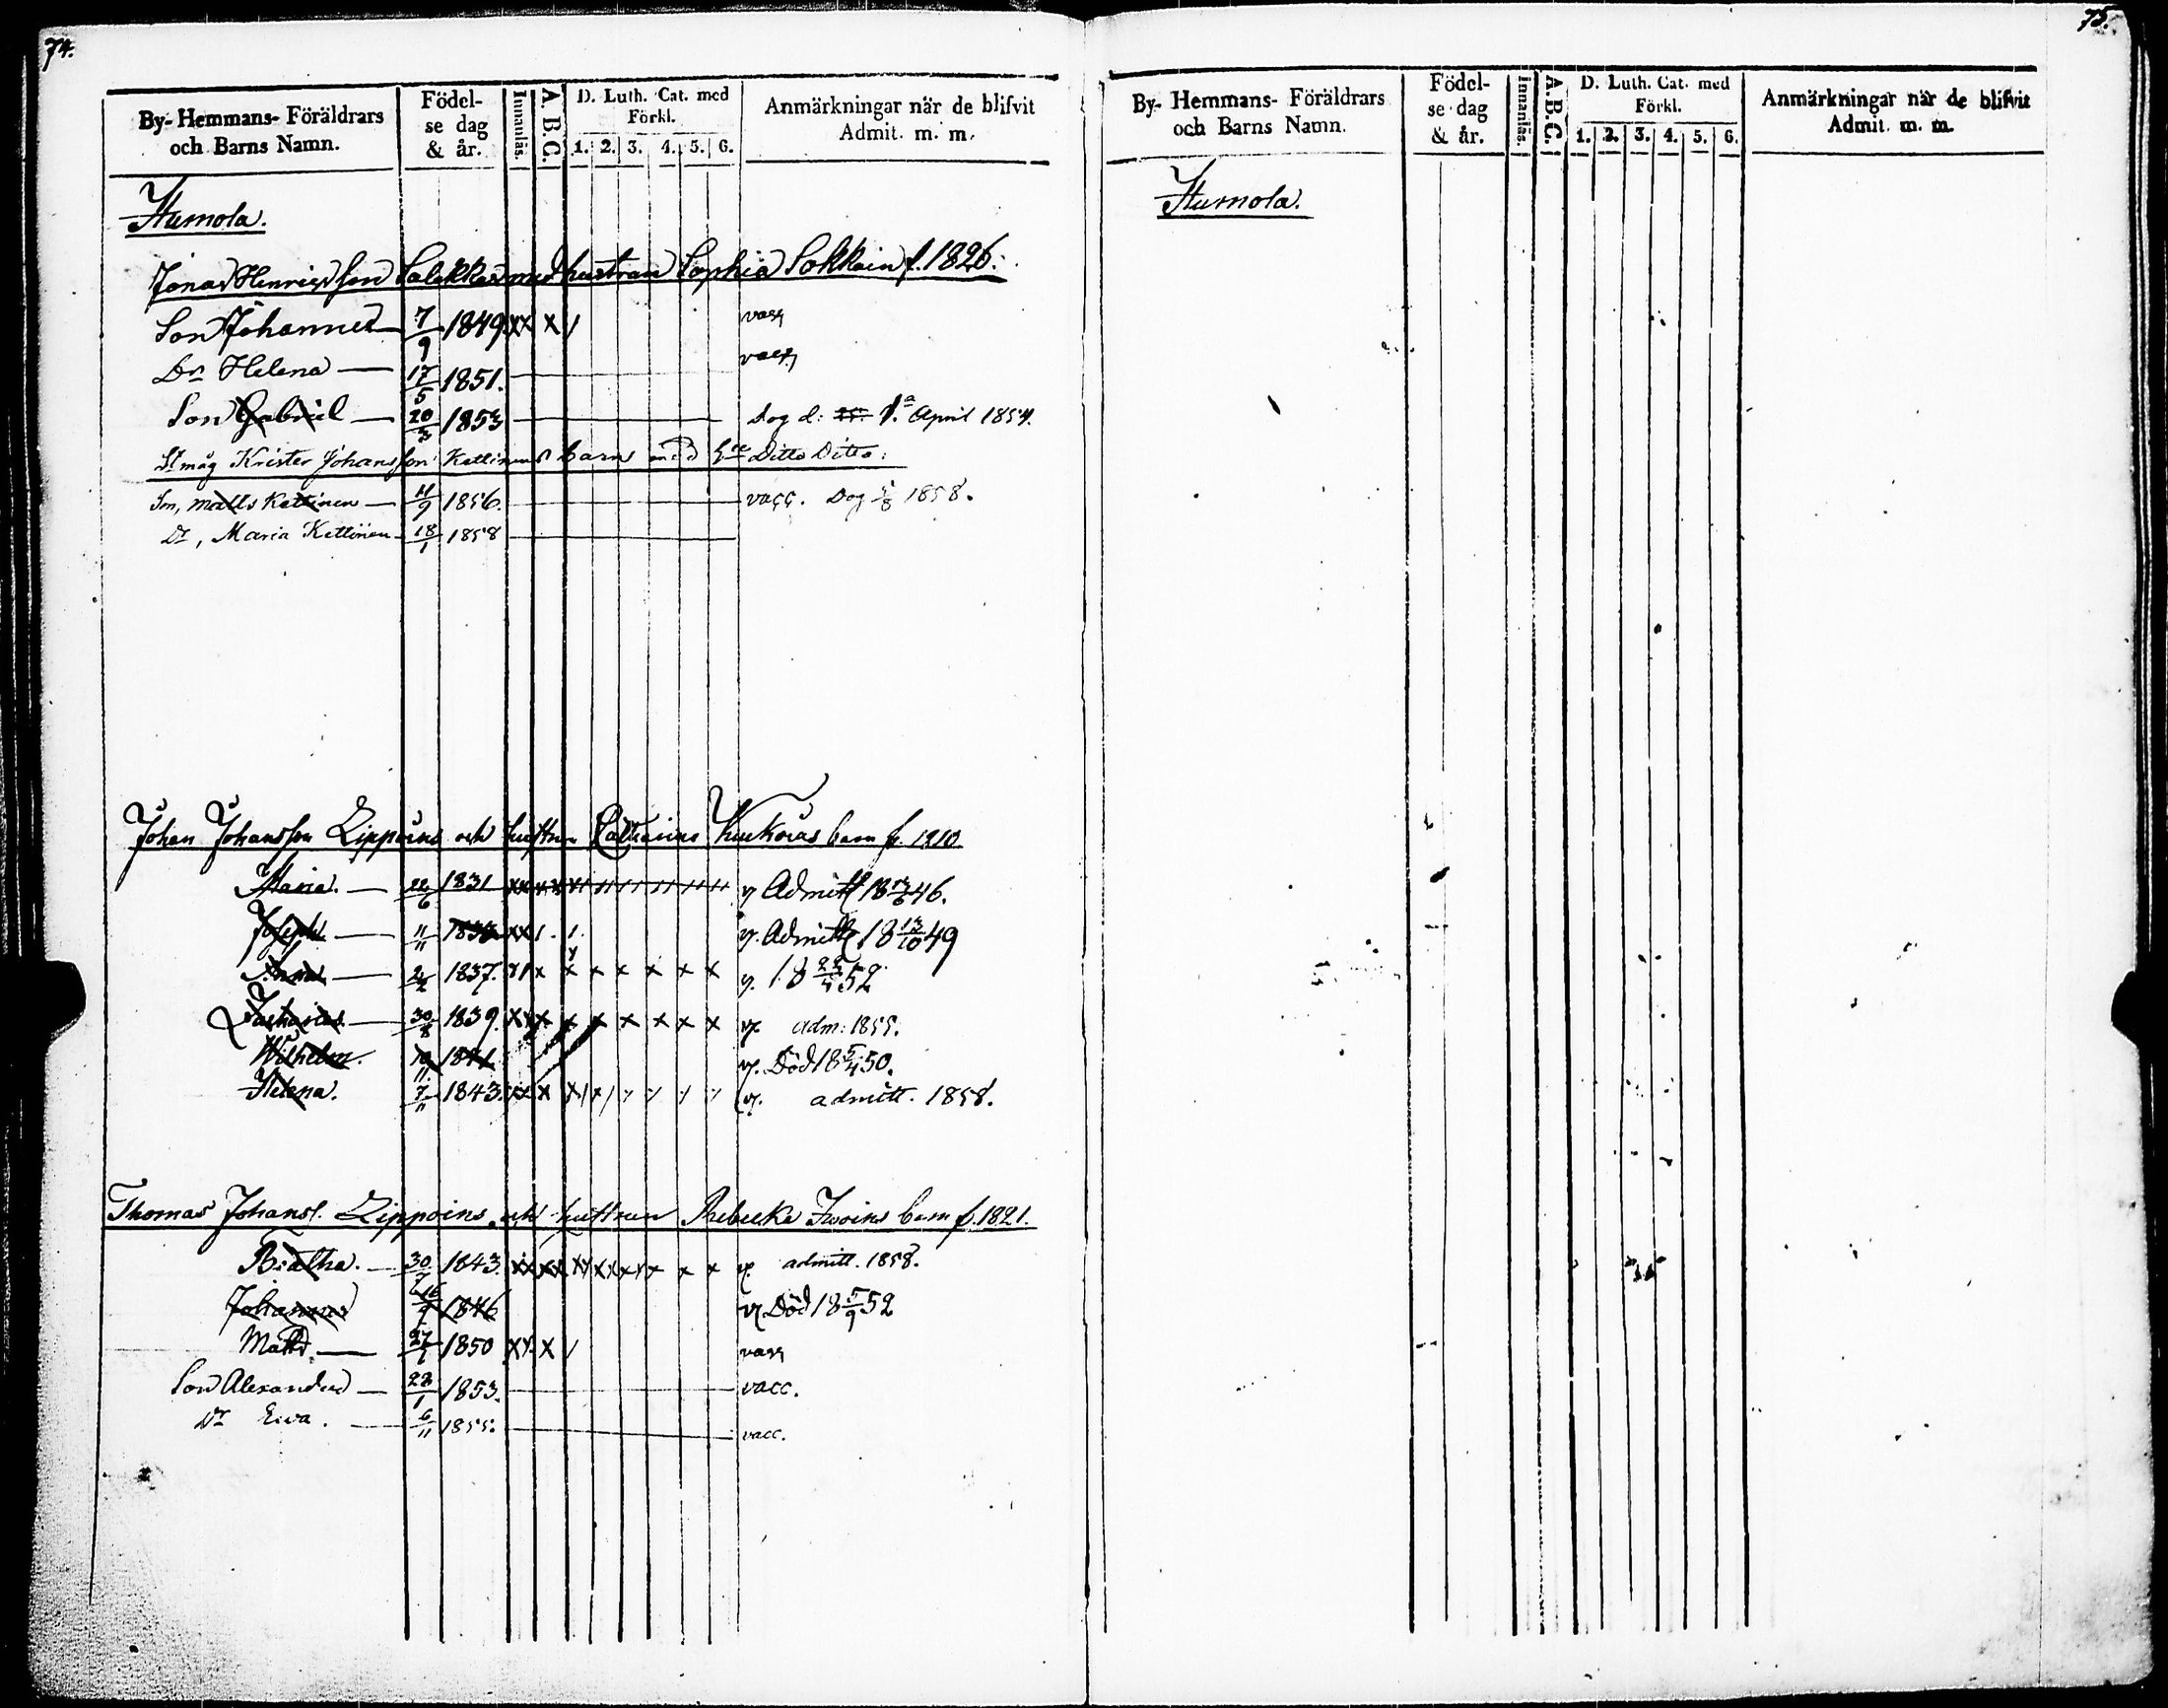 74.
By- Hemmans- Föräldrars och Barns Namn.
Födelse dag & år.
Innanläs.
A. B. C.
D. Luth. Cat. med Förkl.
1. 2. 3. 4. 5. 6.
Anmärkningar när de blifvit Admit. m. m.
Humola.
Jonas Henricsson med hustrun Sophia f. 1826.
Son Johannes 7/9 1849 xx x / vacc
Dr Helena 17/5 1851. vacc
Son Gabriel 20/3 1853 Dog d: 1.a April 1854.
Krister Johansson Kettinens barn med Ditto Ditto:
Son, Matts Kettinen 11/9 1856. vacc. Dog 5/8 1858.
Dr, Maria Kettinen 18/1 1858
Johan Johansson Lippoins och hustrun Catharina barn f. 1810.
Maria. 22/6 1831 v Admitt 46.
Joseph 11/11 v. Admitt 18 13/10 49
Anna 1837. v. 18 52
Zacharias 30/8 1839. x x x x x x v. adm: 1855.
Wilhelm. 1841 v. Död 18 5/4 50.
Helena. 7/11 1843. v. admitt. 1858.
Thomas Johans. Lippoins och hustrun Rebecka barn f. 1821.
Beatha. 30/7 1843. v. admitt. 1858.
Johannes 1846 v Död 18 5/9 52
Matts 27/1 1850 xx x / vacc
Son Alexander 22/1 1853. vacc.
Dr Eva. 6/11 1855. vacc.
75.
By- Hemmans- Föräldrars och Barns Namn.
Födelse dag & år.
Innanläs.
A. B. C.
D. Luth. Cat. med Förkl.
1. 2. 3. 4. 5. 6.
Anmärkningar när de blifvit Admit. m. m.
Humola.